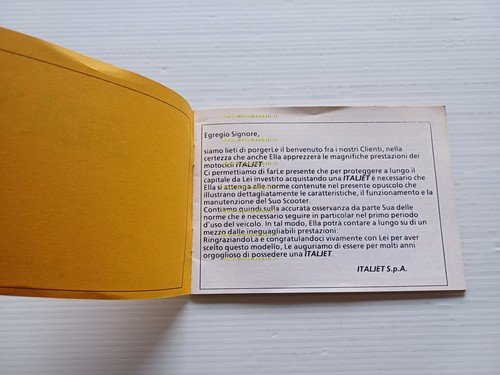 www.motomanuali.it
Egregio Signore,
siamo lieti di porgerLe il benvenuto fra i nostri Clienti, nella
certezza che anche Ella apprezzerà le magnifiche prestazioni dei
motocicli ITALJET.
Ci permettiamo di farLe presente che per proteggere a lungo il
capitale da Lei investito acquistando una ITALJET è necesario che
Ella si attenga alle norme contenute nel presente opuscolo che
illustrano dettagliatamente le caratteristiche, il funzionamento e la
manutenzione del Suo Scooter.
Contiamo quindi sulla accurata osservanza da parte Sua delle
norme che è necessario seguire in particolar nel primo periodo
d'uso del veicolo. In tal modo, Ella potrà contare a lungo su di un
mezzo dalle ineguagliabili prestazioni.
RingraziandoLa e congratulandoci vivamente con Lei per aver
scelto questo modello, Le auguriamo di essere per molti anni
orgoglioso di possedere una ITALJET.
ITALJET S.p.A.